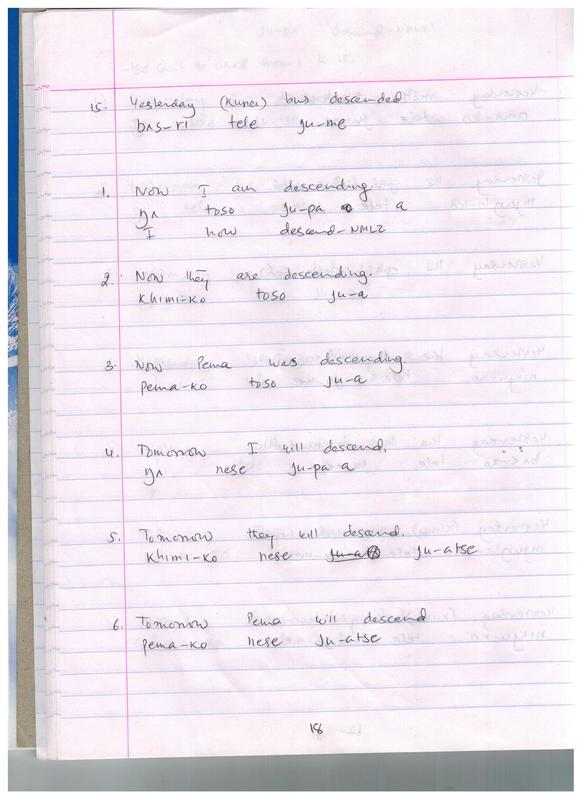 15. Yesterday (Kunei) bus descended.
bʌs-ri tele ju-me
1. Now I am descending.
ŋʌ toso ju-pa a
I now descend-NMLZ
2. Now they are descending.
khimi-ko toso ju-a
3. Now Pema was descending.
pema-ko toso ju-a
4. Tomorrow I will descend.
ŋʌ nese ju-pa a
5. Tomorrow they will descend.
khimi-ko nese ju-a ju-atse
6. Tomorrow Pema will descend
pema-ko nese ju-atse
18